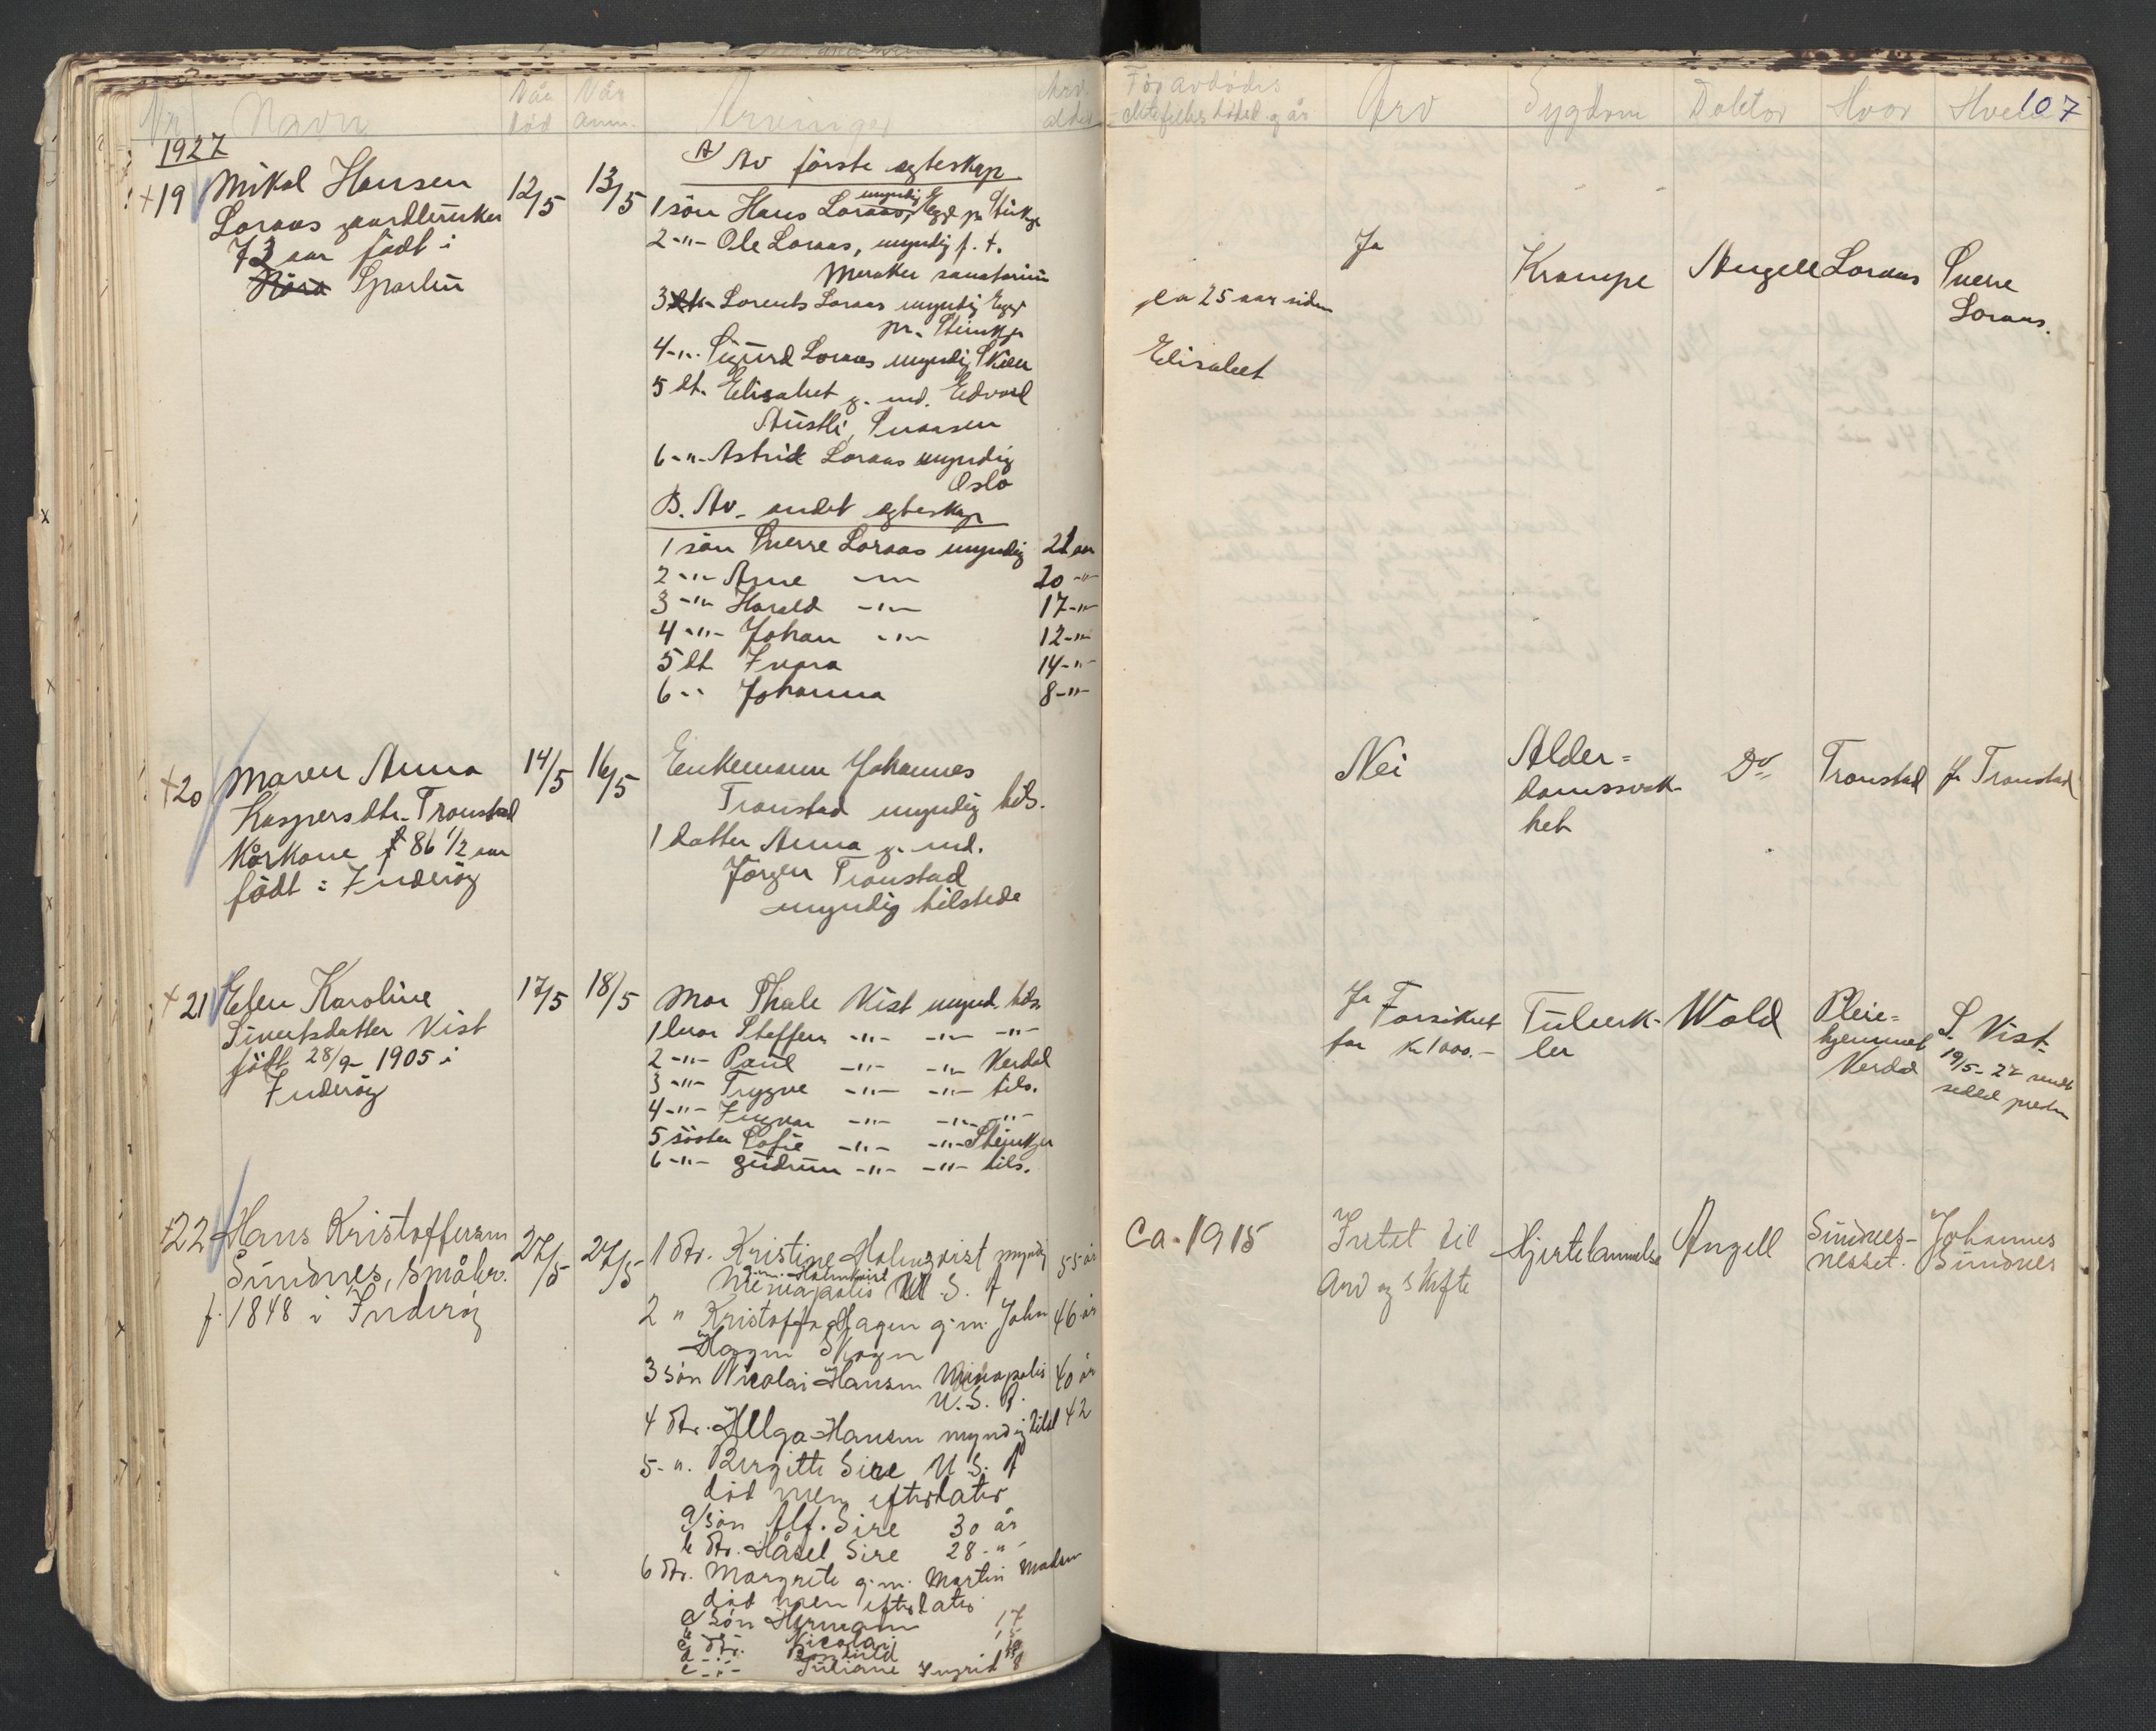 Nr
Navn
Når død
Når anm.
Arvinger
Arv. alder
Før avdødes
ektefelles dødsd. og år
Arv
Sygdom
Doktor
Hvor
107
1927
+19 Mikal Hansen
Loraas gaardbruker
73 aar født i
Sparbu
12/5
13/5
A) Av første egteskap
1 søn Hans Loraas, myndig, Egge pr Stinkjr
2 -"- Ole Loraas, myndig p. t.
Meraker sanatorium
3 -"- Lorents Loraas myndig Egge
pr. Steinkjr
4 -"- Sigurd Loraas myndig Skien
5 dt. Elisabet g. md. Edvard
Austli, Snaasen
6 -"- Astrid Loraas myndig
Oslo
B. Av andet egteskap
1 søn Sverre Loraas myndig 21 aar
2 -"- Arne -"- 20 -"-
3 -"- Harald -"- 17 -"-
4 -"- Johan -"- 12 -"-
5 dt Ivara 14 -"-
6 -"- Johanna 8 -"-
ca 25 aar siden
Elisabet
Ja
Krampe
Angell
Loraas
Sverre
Loraas.
+20 Maren Anna
Kaspersdtr. Tronstad
Kårkone 86 1/2 aar
født i Inderøy
14/5
16/5
Enkemann Johannes
Tronstad myndig tils.
1 datter Anna g. md.
Jørgen Tronstad
myndig tilstede
Nei
Alder=
domssvak-
het
Do
Tronstad
J. Tronstad
+21 Elen Karoline
Sivertsdatter Vist
født 28/9 1905 i
Inderøy
17/5
18/5
Mor Thale Vist mynd. tils.
1 bror Steffen -"- -"- -"-
2 -"- Paul -"- -"- Verdal
3 -"- Trygve -"- -"- tils.
4 -"- Ingvar -"- -"- -"-
5 søster Sofie -"- -"- Steinkjer
6 -"- Gudrun -"- -"- tils.
Ja Forsikret
for Kr 1000.-
Tuberk-
ler
Wold
Pleie=
hjemmet
Verdal
S. Vist
19/5-27 sendt
seddel
+22 Hans Kristoffersen
Sundnes, småbr.
f. 1848 i Inderøy
27/5
27/5
1 dtr. Kristine Holmqvist myndig 55 år
g.m. Holmkvist
Mineapolis U. S. A
2 " Kristoffa Hagen g.m. John 46 år
Hagen Skogn
3 søn Nicolai Hansen Mineapolis 40 år
U. S. A.
4 dtr. Helga Hansen myndig tilst 42
5 -"- Bergitte Sire U. S. A
død men efterlater
a/ søn Alf. Sire 30 år
b dtr. Håsel Sire 28 -"-
6 dtr. Margrete g.m. Martin Madsen
død men efterlater
a søn Hermann 17
b -"- Nicolai
c dtr. Bonhild
d -"- Juliane Ingrid 8
Ca. 1915
Intet til
Arv og skifte
Hjertelammelse
Angell
Sundnes-
nesset.
Johannes
Sundnes